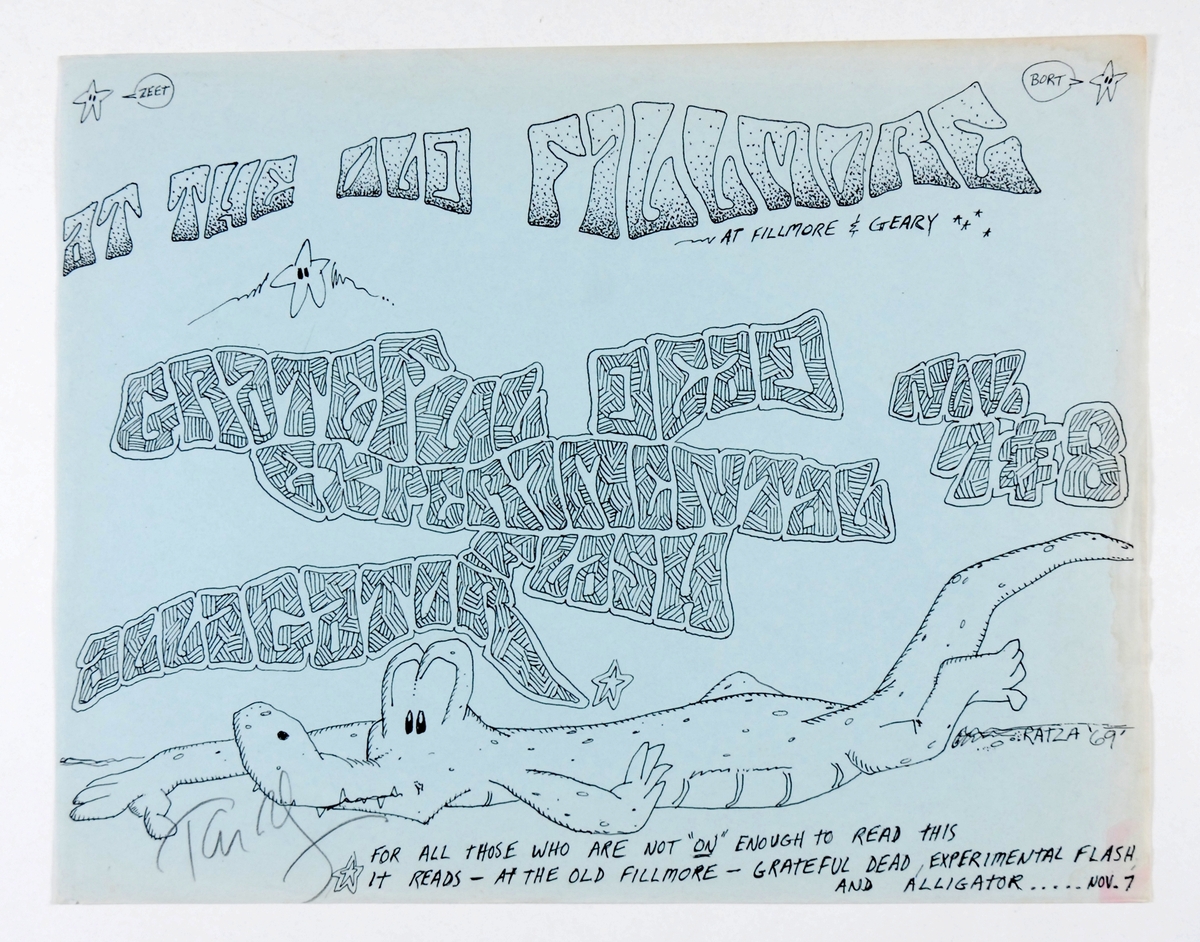 ZEET
BORT
AT THE OLD FILLMORE
AT FILLMORE & GEARY
GRATEFUL DEAD
NOV.
7 & 8
EXPERIMENTAL
FLASH
ALLIGATOR
RATZA '69'
FOR ALL THOSE WHO ARE NOT "ON" ENOUGH TO READ THIS
IT READS – AT THE OLD FILLMORE – GRATEFUL DEAD, EXPERIMENTAL FLASH,
AND ALLIGATOR ..... NOV. 7